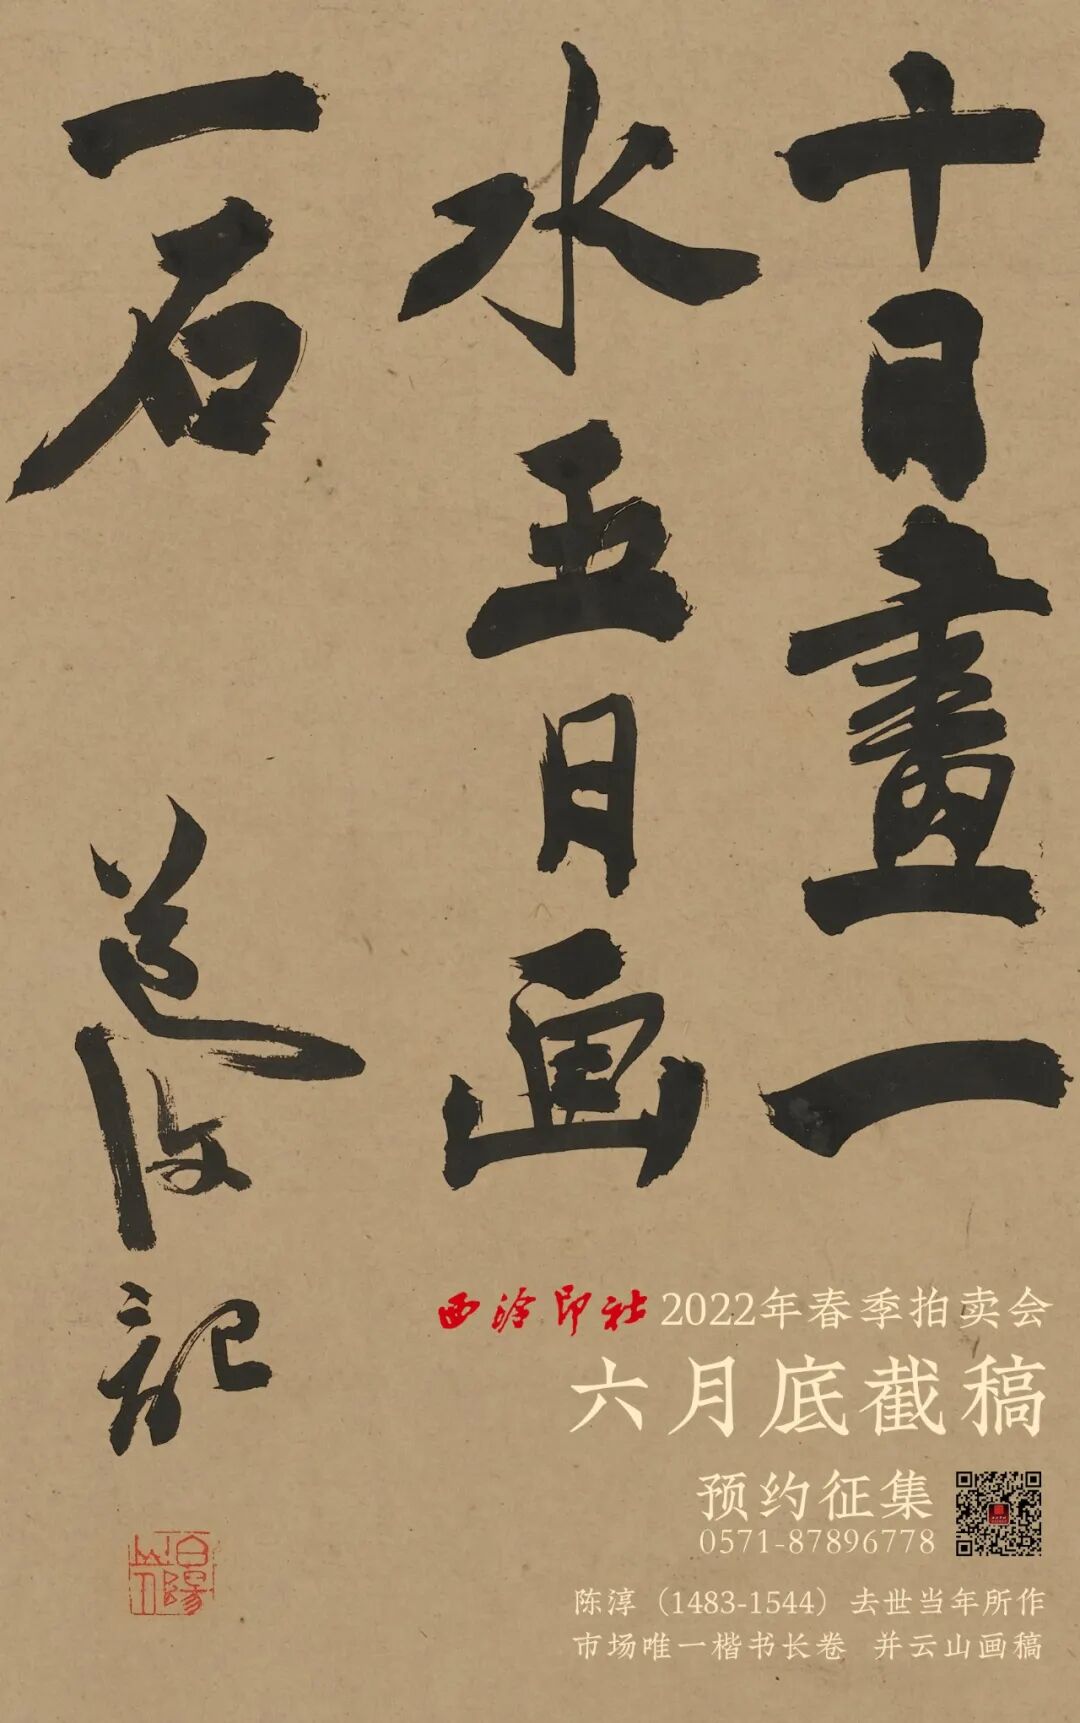 十日畫一
水五日画
一石
道復記
白陽山人
西泠印社 2022年春季拍卖会
六月底截稿
预约征集
0571-87896778
陈淳（1483-1544）去世当年所作
市场唯一楷书长卷 并云山画稿